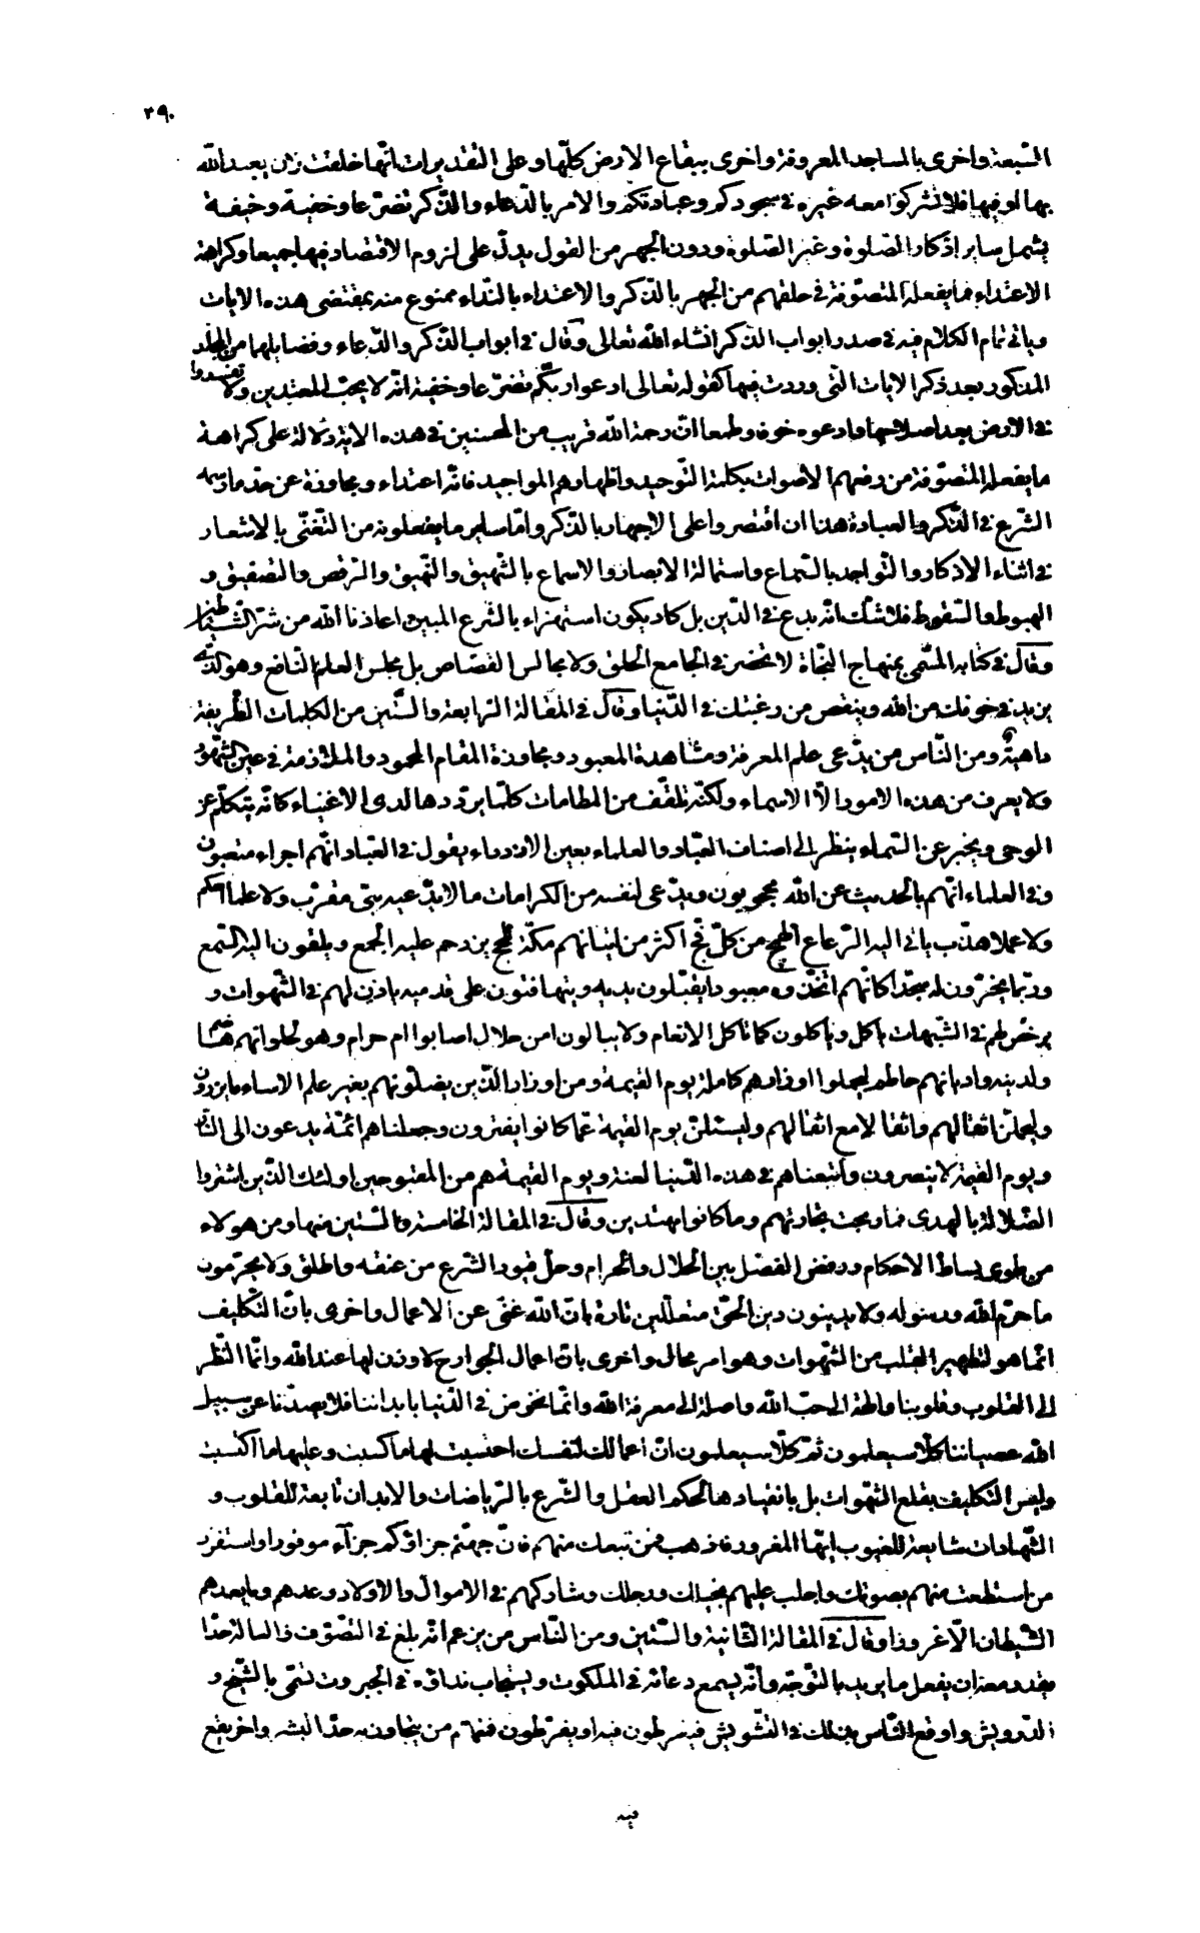 ٢٩٠
السبعة واخرى بالمساجد المعروفة واخرى ببقاع الارض كلّها وعلى التقديرات انّها خلقت لان يعبد اللّه
بها او فيها فلا تشركوا معه غيره فى سجودكم وعبادتكم والامر بالدّعاء والذّكر تضرّعا وخفية وخيفة
يشمل ساير اذكار الصّلوة وغير الصّلوة ودون الجهر من القول يدلّ على لزوم الاقتصاد فيها جميعا وكراهة
الاعتداء فما يفعله المتصوّفة فى حلقهم من الجهر بالذّكر والاعتداء بالنّداء ممنوع منه بمقتضى هذه الايات
وياتى تمام الكلام فيه فى صدر ابواب الذّكر انشاء اللّه تعالى وقال فى ابواب الذّكر والدّعاء وفضايلها من المجلّد
المذكور بعد ذكر الايات التى وردت فيها كقوله تعالى ادعوا ربّكم تضرّعا وخفية انّه لا يحبّ المعتدين ولا تفسدوا
فى الارض بعد اصلاحها وادعوه خوفا وطمعا انّ رحمة اللّه قريب من المحسنين فى هذه الاية دلالة على كراهة
ما يفعله المتصوّفة من رفعهم الاصوات بكلمة التّوحيد واظهارهم المواجيد فانّه اعتداء ومجاوزة عن حدّ ما رسمه
الشّرع فى الذّكر والعبادة هذا ان اقتصروا على الاجهار بالذّكر وامّا ساير ما يفعلونه من التّغنّى بالاشعار
فى اثناء الاذكار والتّواجد بالسّماع واستمالة الابصار والاسماع بالشّهيق والنّهيق والرّقص والتّصفيق و
الهبوط والسّقوط فلا شكّ انّه بدع فى الدّين بل كاد يكون استهزاء بالشّرع المبين اعاذنا اللّه من شرّ الشّياطين
وقال فى كتابه المسمّى بمنهاج النّجاة لا تحضر فى الجامع الحلق ولا مجالس القصّاص بل مجلس العلم النّافع وهو الّذى
يزيد فى خوفك من اللّه وينقص من رغبتك فى الدّنيا وقال فى المقالة الرّابعة والسّتّين من الكلمات الظّريفة
ما هيّة ومن النّاس من يدّعى علم المعرفة ومشاهدة المعبود ومجاوزة المقام المحمود والملازمة فى عين الشّهود
ولا يعرف من هذه الامور الّا الاسماء ولكنّه تلقّف من الطامات كلمات يردّدها لدى الاغنياء كانّه يتكلّم عن
الوحى ويخبر عن السّماء ينظر الى اصناف العبّاد والعلماء بعين الازدراء يقول فى العبّاد انّهم اجراء متعبون
وفى العلماء انّهم بالحديث عن اللّه محجوبون ويدّعى لنفسه من الكرامات ما لا يدّعيه نبىّ مقرّب ولا علما احكم
ولا عملا هذّب ياتى اليه الرّعاع الهمج من كلّ فجّ اكثر من اتيانهم مكّة للحجّ يزدحم عليه الجمع ويلقون اليه السّمع
وربّما يخرّون له سجّدا كانّهم اتّخذوه معبودا يقبّلون يديه ويتهافتون على قدميه ياذن لهم فى الشّهوات و
يرخّص لهم فى الشّبهات ياكل وياكلون كما تاكل الانعام ولا يبالون امن حلال اصابوا ام حرام وهو لحلوائهم هضّام
ولدينه واديانهم حاطم ليحملوا اوزارهم كاملة يوم القيمة ومن اوزار الّذين يضلّونهم بغير علم الا ساء ما يزرون
وليحملنّ اثقالهم واثقالا مع اثقالهم وليسئلنّ يوم القيمة عمّا كانوا يفترون وجعلناهم ائمّة يدعون الى النّار
ويوم القيمة لا ينصرون واتبعناهم فى هذه الدّنيا لعنة ويوم القيمة هم من المقبوحين اولئك الّذين اشتروا
الضّلالة بالهدى فما ربحت تجارتهم وما كانوا مهتدين وقال فى المقالة الخامسة والستّين منها ومن هولاء
من طوى بساط الاحكام ورفض الفصل بين الحلال والحرام وحلّ قيود الشّرع من عنقه واطلق ولا يحرّمون
ما حرّم اللّه ورسوله ولا يدينون دين الحقّ متعلّلين تارة بانّ اللّه غنىّ عن الاعمال واخرى بانّ التّكليف
انّما هو لتطهير القلب من الشّهوات وهو امر محال واخرى بانّ اعمال الجوارح لا وزن لها عند اللّه وانّما النّظر
الى القلوب وقلوبنا والهة الى حبّ اللّه واصلة الى معرفة اللّه وانّما نخوض فى الدّنيا بابداننا فلا يصدّنا عن سبيل
اللّه عصياننا كلّا سيعلمون ثمّ كلّا سيعلمون انّ اعمالك لنفسك احتسبت لها ما كسبت وعليها ما اكتسبت
وليس التكليف بقلع الشّهوات بل بانقيادها لحكم العقل والشّرع بالرّياضات والابدان تابعة للقلوب و
الشّهادات مشايعة للغيوب ايّها المغرور فاذهب فمن تبعك منهم فانّ جهنّم جزاؤكم جزآء موفورا واستفزز
من استطعت منهم بصوتك واجلب عليهم بخيلك ورجلك وشاركهم فى الاموال والاولاد وعدهم وما يعدهم
الشّيطان الّا غرورا وقال فى المقالة الثّانية والسّتّين ومن النّاس من يزعم انّه بلغ فى التّصوّف والتّالّه حدّا
يقدر معه ان يفعل ما يريد بالتّوجّه وانّه يسمع دعائه فى الملكوت ويستجاب نداؤه فى الجبروت تسمّى بالشّيخ و
الدّرويش واوقع النّاس بذلك فى التّشويش فيفرطون فيه او يفرّطون فمنهم من يتجاوز به حدّ البشر واخر يقع
فيه